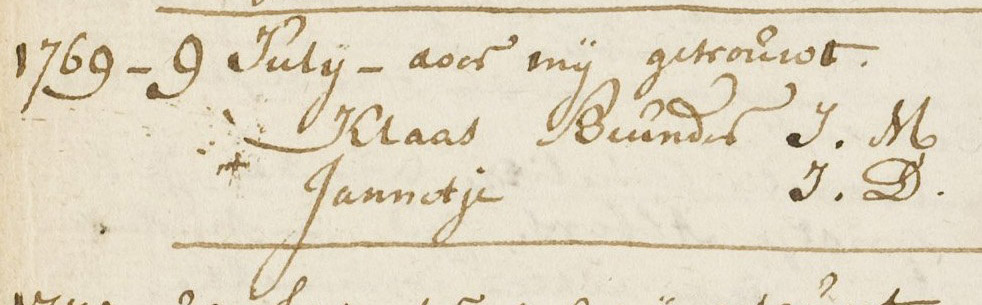 1769 - 9 July - door mÿ getrouwt.
Klaas Beunder J. M
Jannetje J. D.